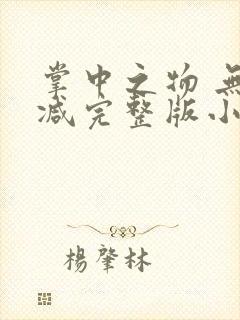 掌中之物 無
减完整版小
楊肇林